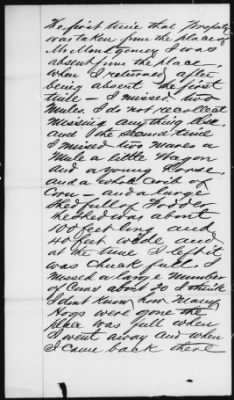 The first time that property
was taken from the place of
Mr Montgomery I was
absent from the place.
When I returned after
being absent the first
time - I missed two
mules I do not recollect
missing anything else.
and the second time
I missed two mares a
Mule a little Wagon
and a young Horse.
and a whole Crib of
Corn - and a large
Shed full of Fodder
the shed was about
100 feet long and
40 feet wide, and
at the time I left it
was chuck full. I
missed a large number
of Cows about 20 I think
I dont Know how many
Hogs were gone the
place was full when
I went away and when
I came back there